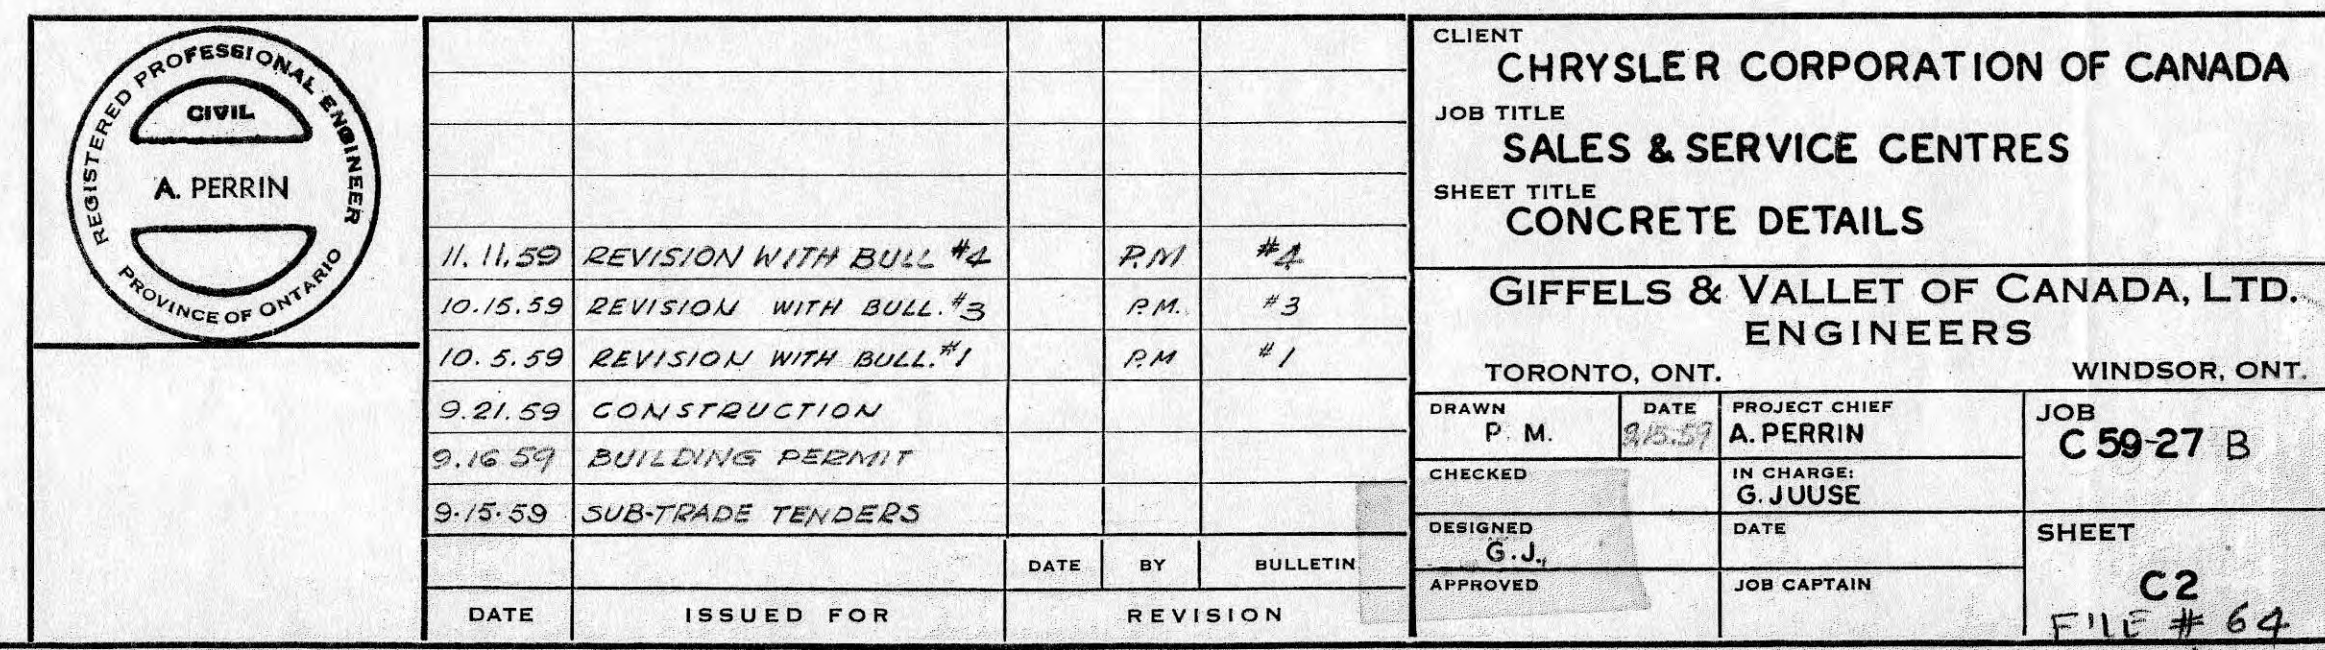 REGISTERED PROFESSIONAL ENGINEER
CIVIL
A. PERRIN
PROVINCE OF ONTARIO
11.11.59 REVISION WITH BULL #4 P.M #4
10.15.59 REVISION WITH BULL. #3 P.M. #3
10.5.59 REVISION WITH BULL. #1 P.M #1
9.21.59 CONSTRUCTION
9.16 59 BUILDING PERMIT
9.15.59 SUB-TRADE TENDERS
DATE BY BULLETIN
DATE ISSUED FOR REVISION
CLIENT
CHRYSLER CORPORATION OF CANADA
JOB TITLE
SALES & SERVICE CENTRES
SHEET TITLE
CONCRETE DETAILS
GIFFELS & VALLET OF CANADA, LTD.
ENGINEERS
TORONTO, ONT. WINDSOR, ONT.
DRAWN DATE PROJECT CHIEF JOB
P. M. 9.15.59 A. PERRIN C 59-27 B
CHECKED IN CHARGE:
G. JUUSE
DESIGNED DATE SHEET
G.J.,
APPROVED JOB CAPTAIN C2
FILE # 64